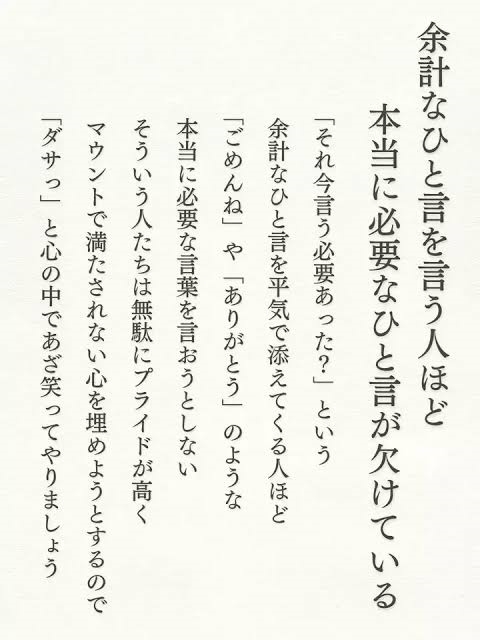 余計なひと言を言う人ほど
本当に必要なひと言が欠けている
「それ今言う必要あった？」という
余計なひと言を平気で添えてくる人ほど
「ごめんね」や「ありがとう」のような
本当に必要な言葉を言おうとしない
そういう人たちは無駄にプライドが高く
マウントで満たされない心を埋めようとするので
「ダサっ」と心の中であざ笑ってやりましょう